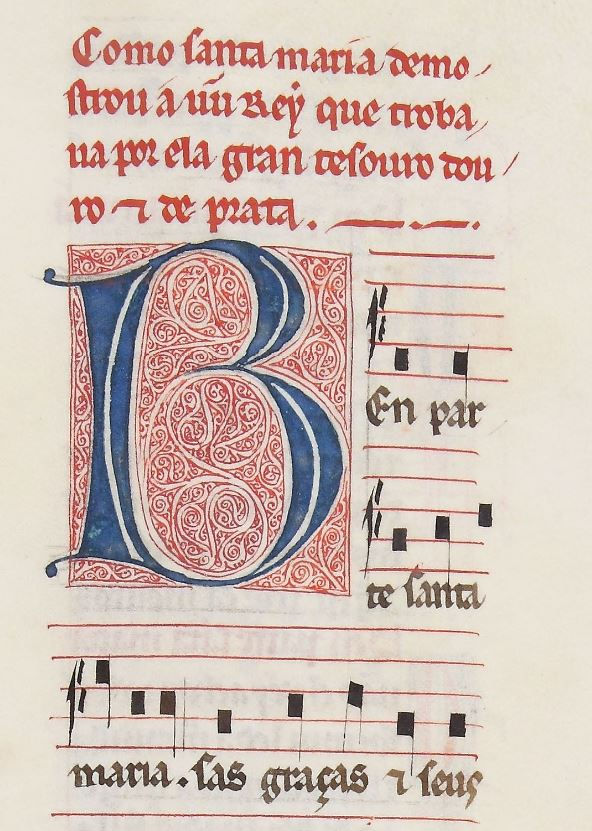 Como santa maria demo
strou a uũ Rey que troba
ua por ela gran tesouro dou
ro ⁊ de prata.
B
En par
te santa
maria . sas graças ⁊ seus